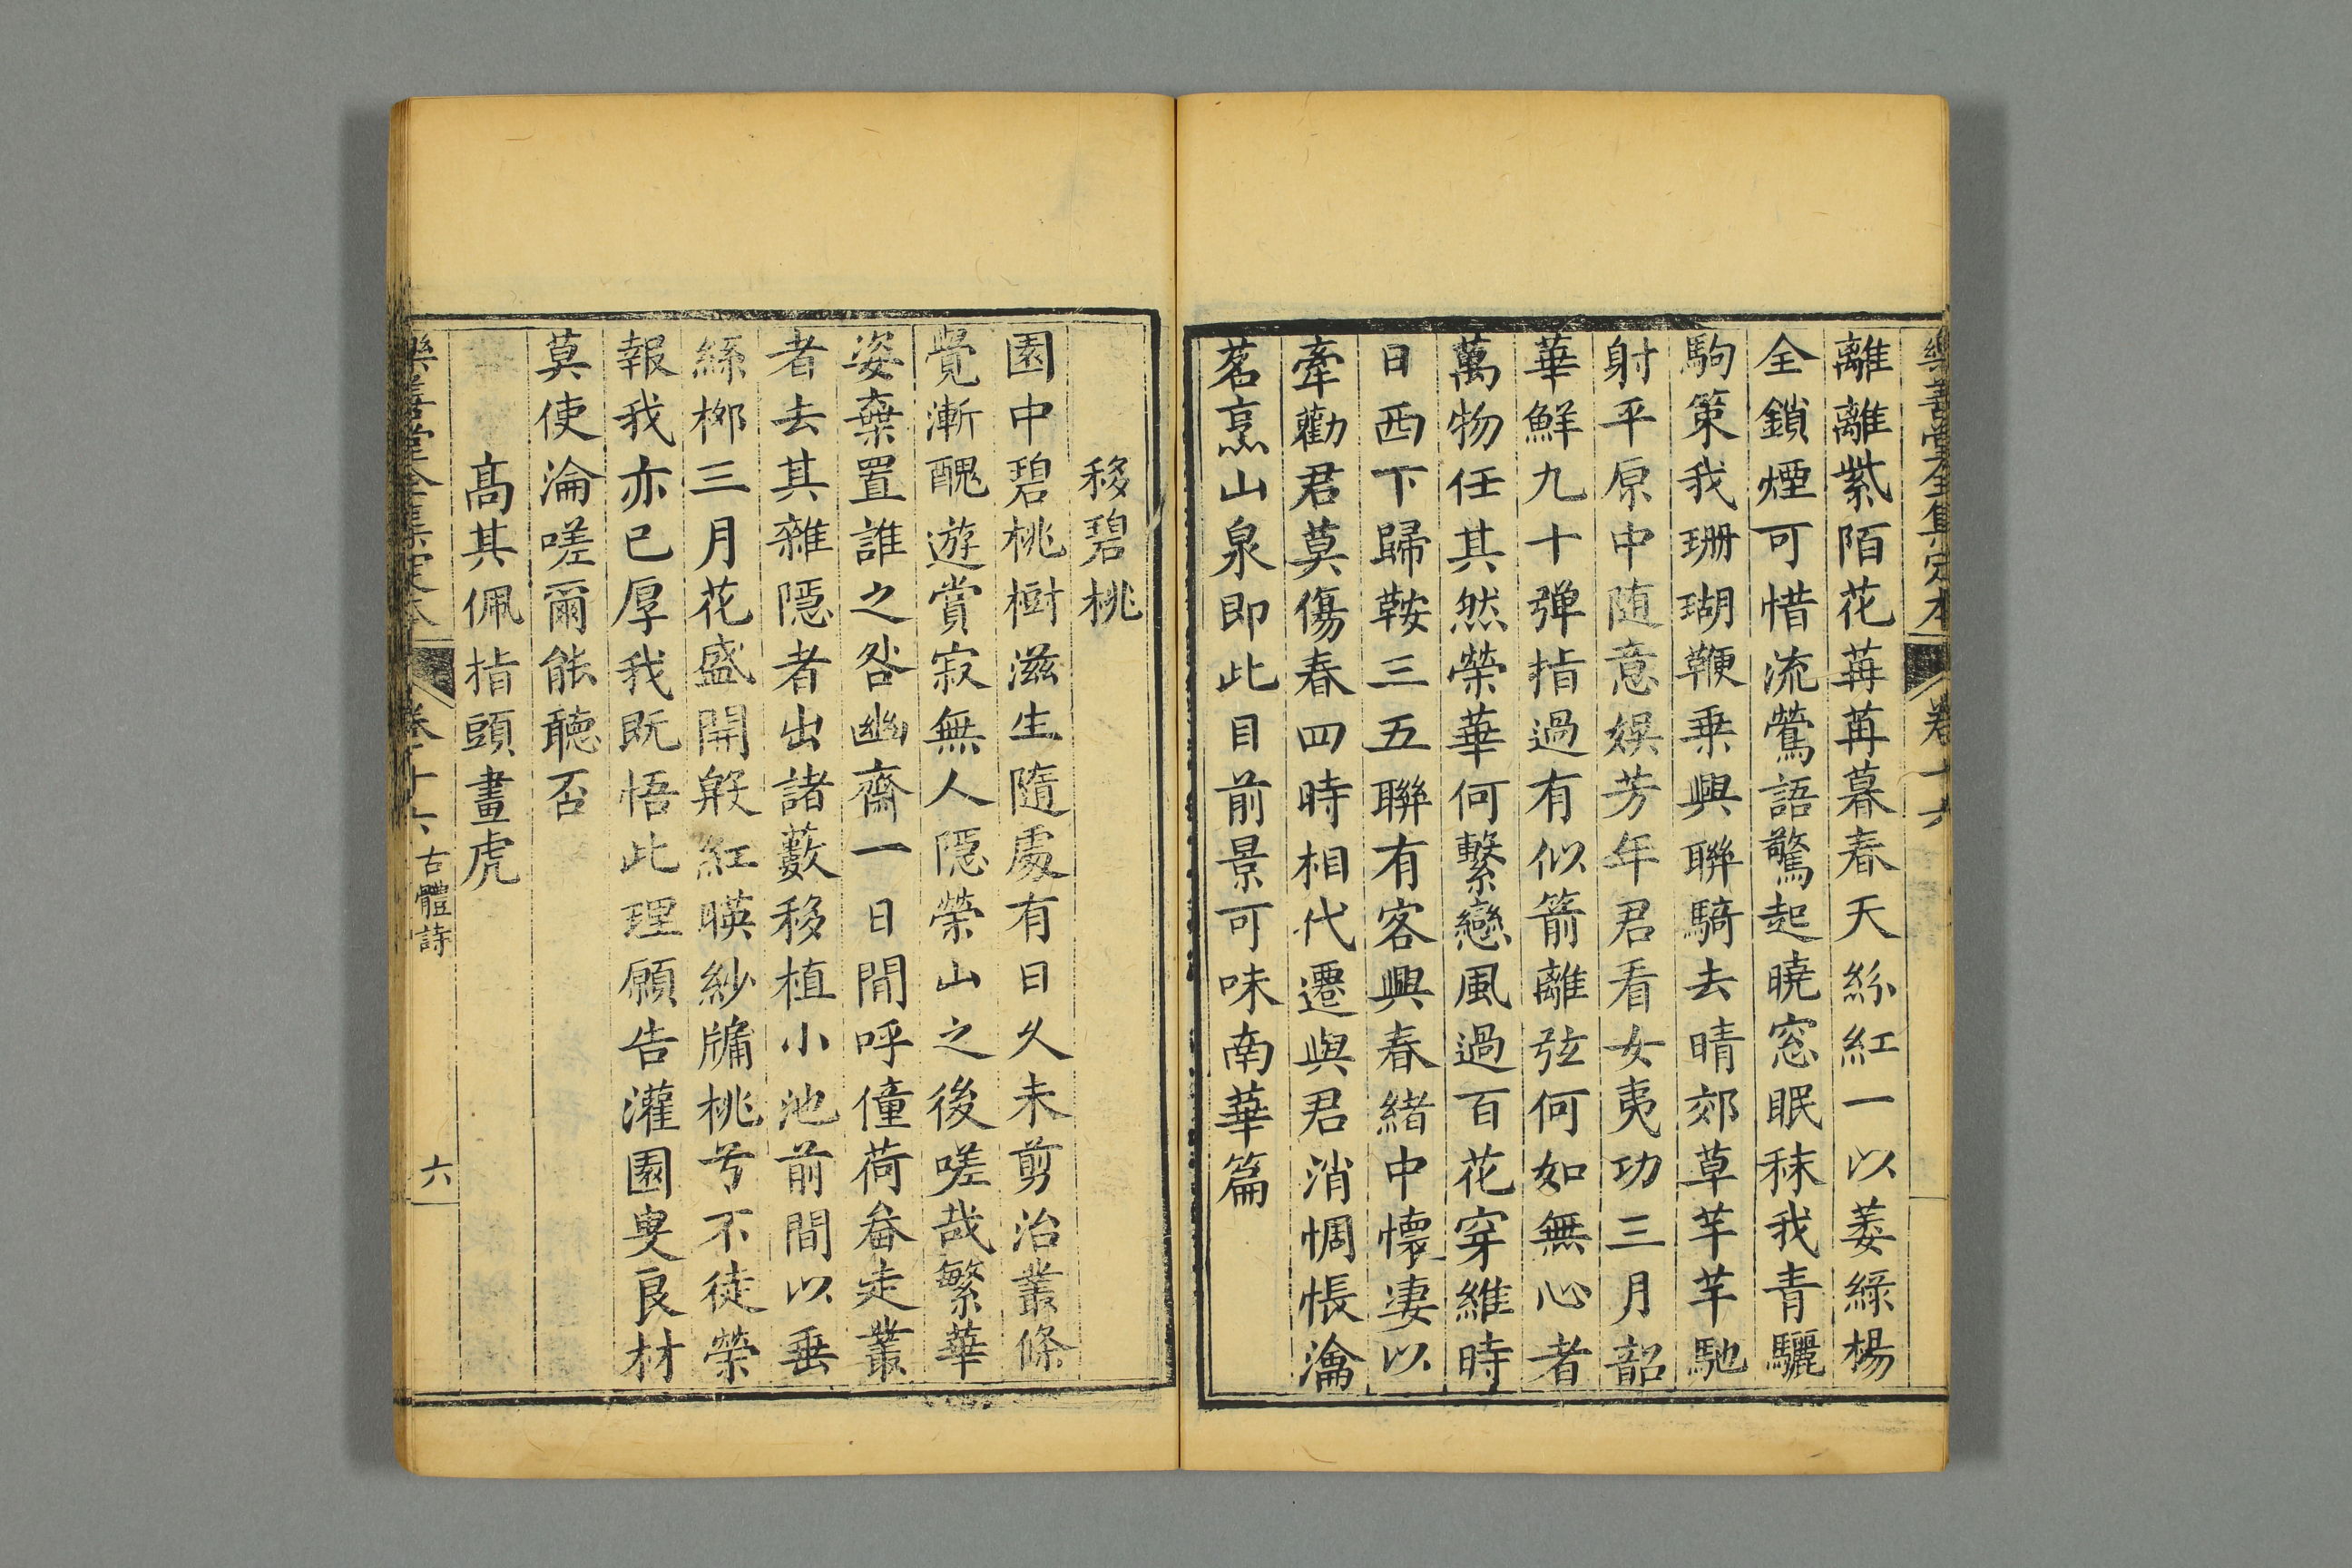 樂善堂全集定本 卷十六
離離紫陌花苒苒暮春天絲紅一以萎綠楊
全鎖煙可惜流鶯語驚起曉窓眠秣我青驪
駒策我珊瑚鞭乗興聯騎去晴郊草芊芊馳
射平原中随意娱芳年君看女夷功三月韶
華鮮九十弹指過有似箭離弦何如無心者
萬物任其然榮華何繫戀風過百花穿維時
日西下歸鞍三五聯有客興春緒中懷凄以
牽勸君莫傷春四時相代遷與君消惆悵瀹
茗烹山泉即此目前景可味南華篇
移碧桃
園中碧桃樹滋生隨處有日久未剪治叢條
覺漸醜遊賞寂無人隱榮山之後嗟哉繁華
姿棄置誰之咎幽齋一日閒呼僮荷畚走叢
者去其雜隱者出諸藪移植小池前間以垂
絲桺三月花盛開殷紅暎紗牖桃兮不徒榮
報我亦已厚我既悟此理願告灌園叟良材
莫使淪嗟爾能聽否
高其佩指頭畫虎
樂善堂全集定本 卷十六 古體詩 六